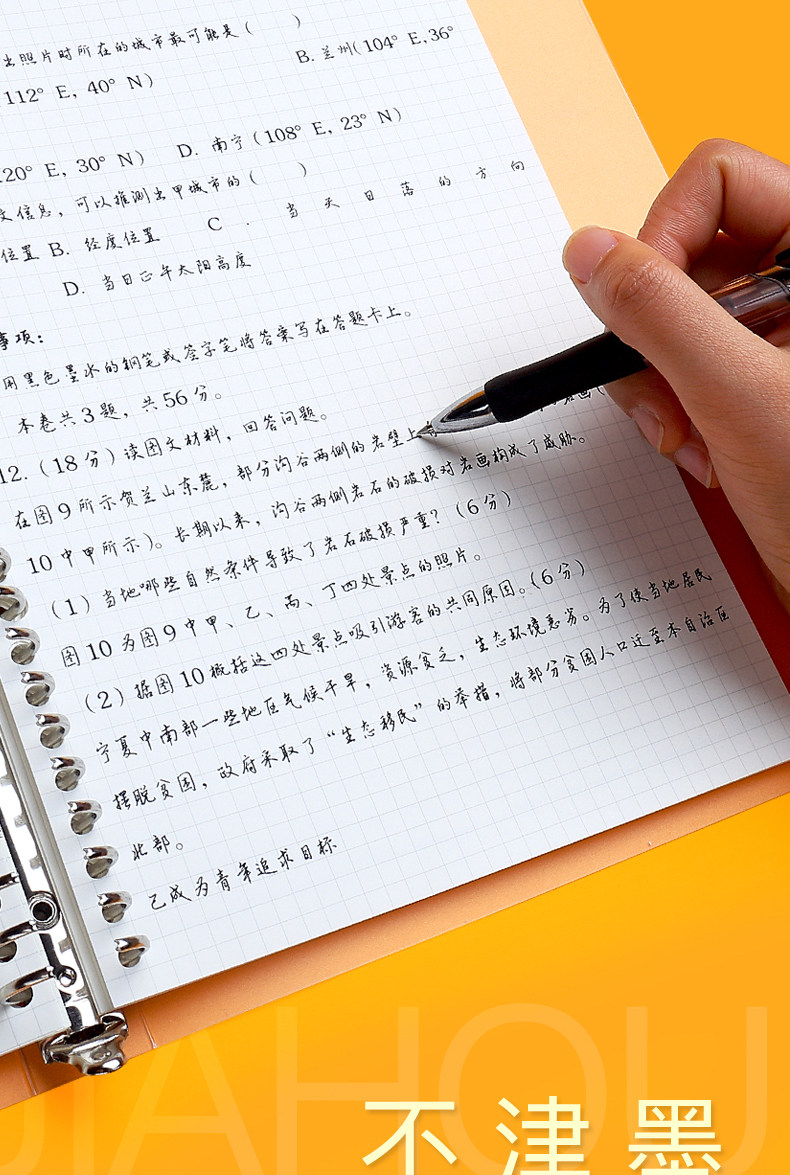 出照片时所在的城市最可能是(　　)
112° E, 40° N)　　B. 兰州(104° E,36°
20° E, 30° N)　D. 南宁(108° E, 23° N)
文信息，可以推测出甲城市的(　　)
位置 B. 经度位置　C . 当天日落的方向
D. 当日正午太阳高度
事项：
用黑色墨水的钢笔或签字笔将答案写在答题卡上。
本卷共3题，共56分。
12.(18分)读图文材料，回答问题。
在图9所示贺兰山东麓，部分沟谷两侧的岩壁上
10中甲所示)。长期以来，沟谷两侧岩石的破损对岩画构成了威胁。
(1)当地哪些自然条件导致了岩石破损严重？(6分)
图10为图9中甲、乙、丙、丁四处景点的照片。
(2)据图10概括这四处景点吸引游客的共同原因。(6分)
宁夏中南部一些地区气候干旱，资源贫乏，生态环境恶劣。为了使当地居民
摆脱贫困，政府采取了“生态移民”的举措，将部分贫困人口迁至本自治区
北部。
己成为青年追求目标
JIAHOU
不津墨